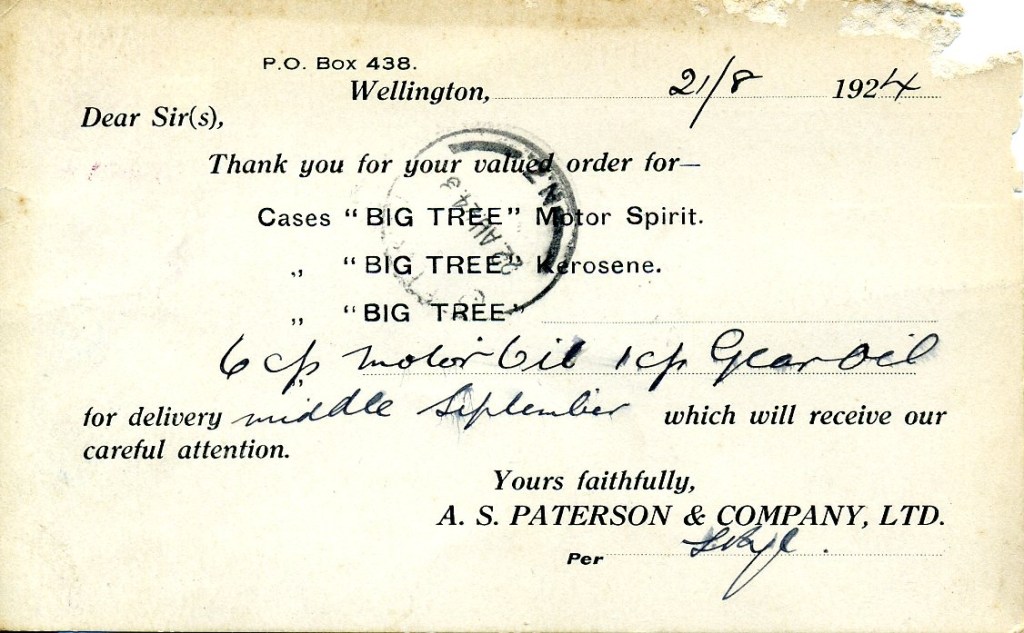 P.O. Box 438.
Wellington, 21/8 1924
Dear Sir(s),
Thank you for your valued order for—
Cases "BIG TREE" Motor Spirit.
„ "BIG TREE" Kerosene.
„ "BIG TREE"
6 c/s Motor Oil 1 c/s Gear Oil
for delivery middle September which will receive our
careful attention.
Yours faithfully,
A. S. PATERSON & COMPANY, LTD.
Per
N.Z.
22 AU 24.3